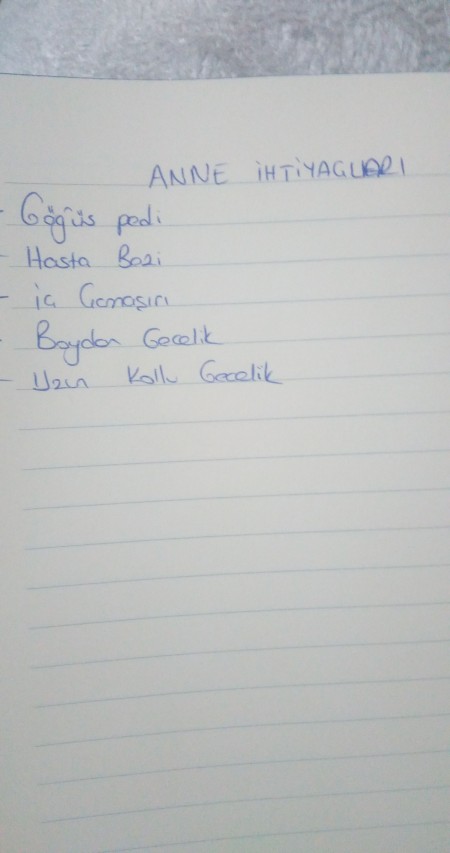 ANNE İHTİYAÇLARI
- Göğüs pedi
- Hasta Bezi
- İç Çamaşırı
- Boydan Gecelik
- Uzun Kollu Gecelik